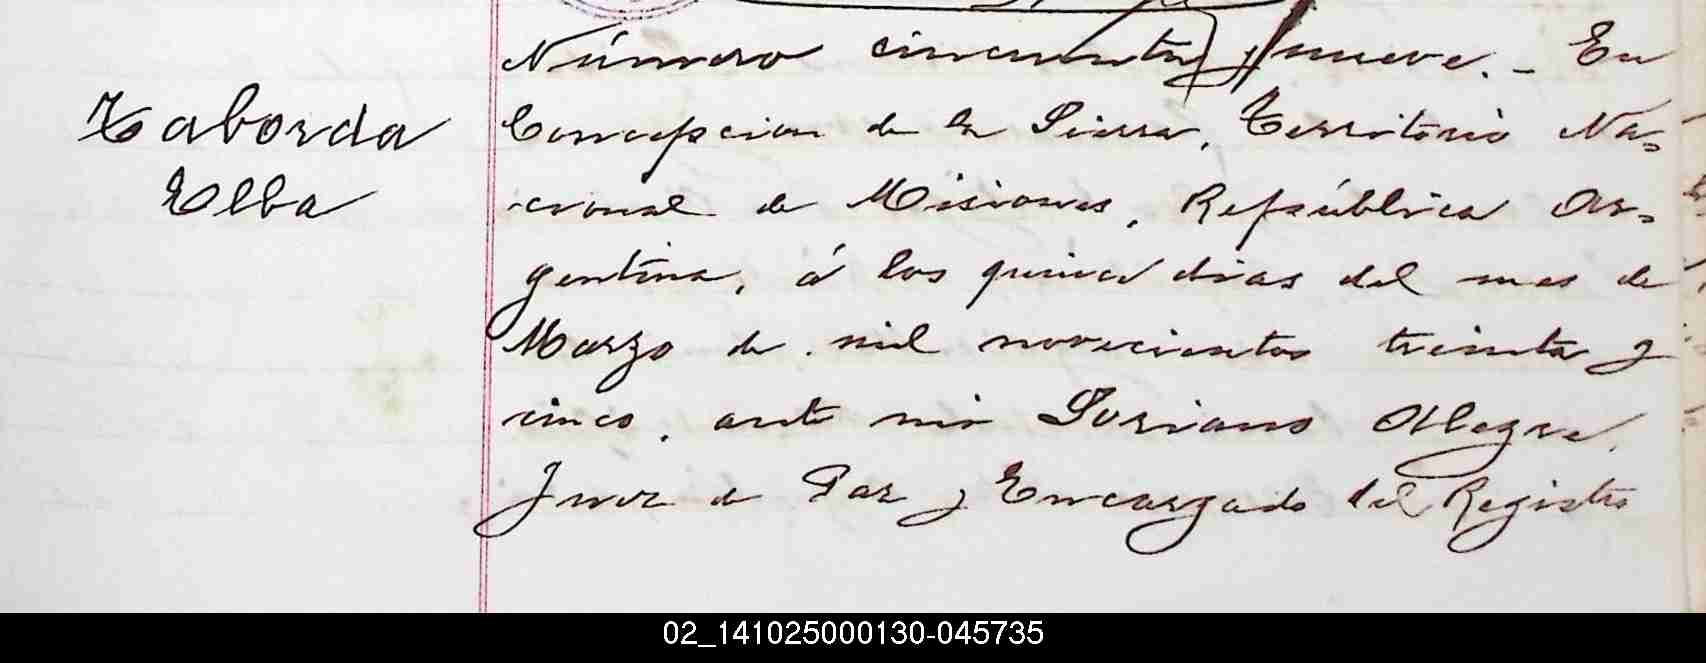 Taborda
Elba
Número cincuenta y nueve. - En
Concepcion de la Sierra, Territorio Na=
cional de Misiones, República Ar=
gentina, á los quince dias del mes de
Marzo de mil novecientos treinta y
cinco, ante mi Soriano Alegre,
Juez de Paz y Encargado del Registro
02_141025000130-045735